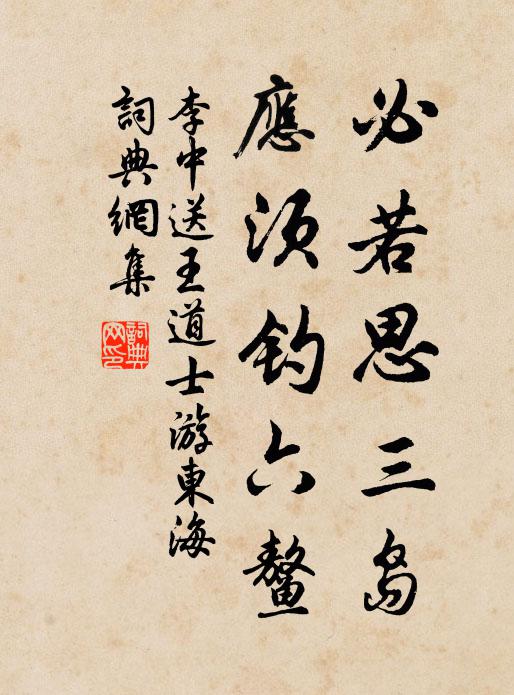 必若思三島
應須釣六鼇
李中送王道士游東海
詞典網集
詞典網印